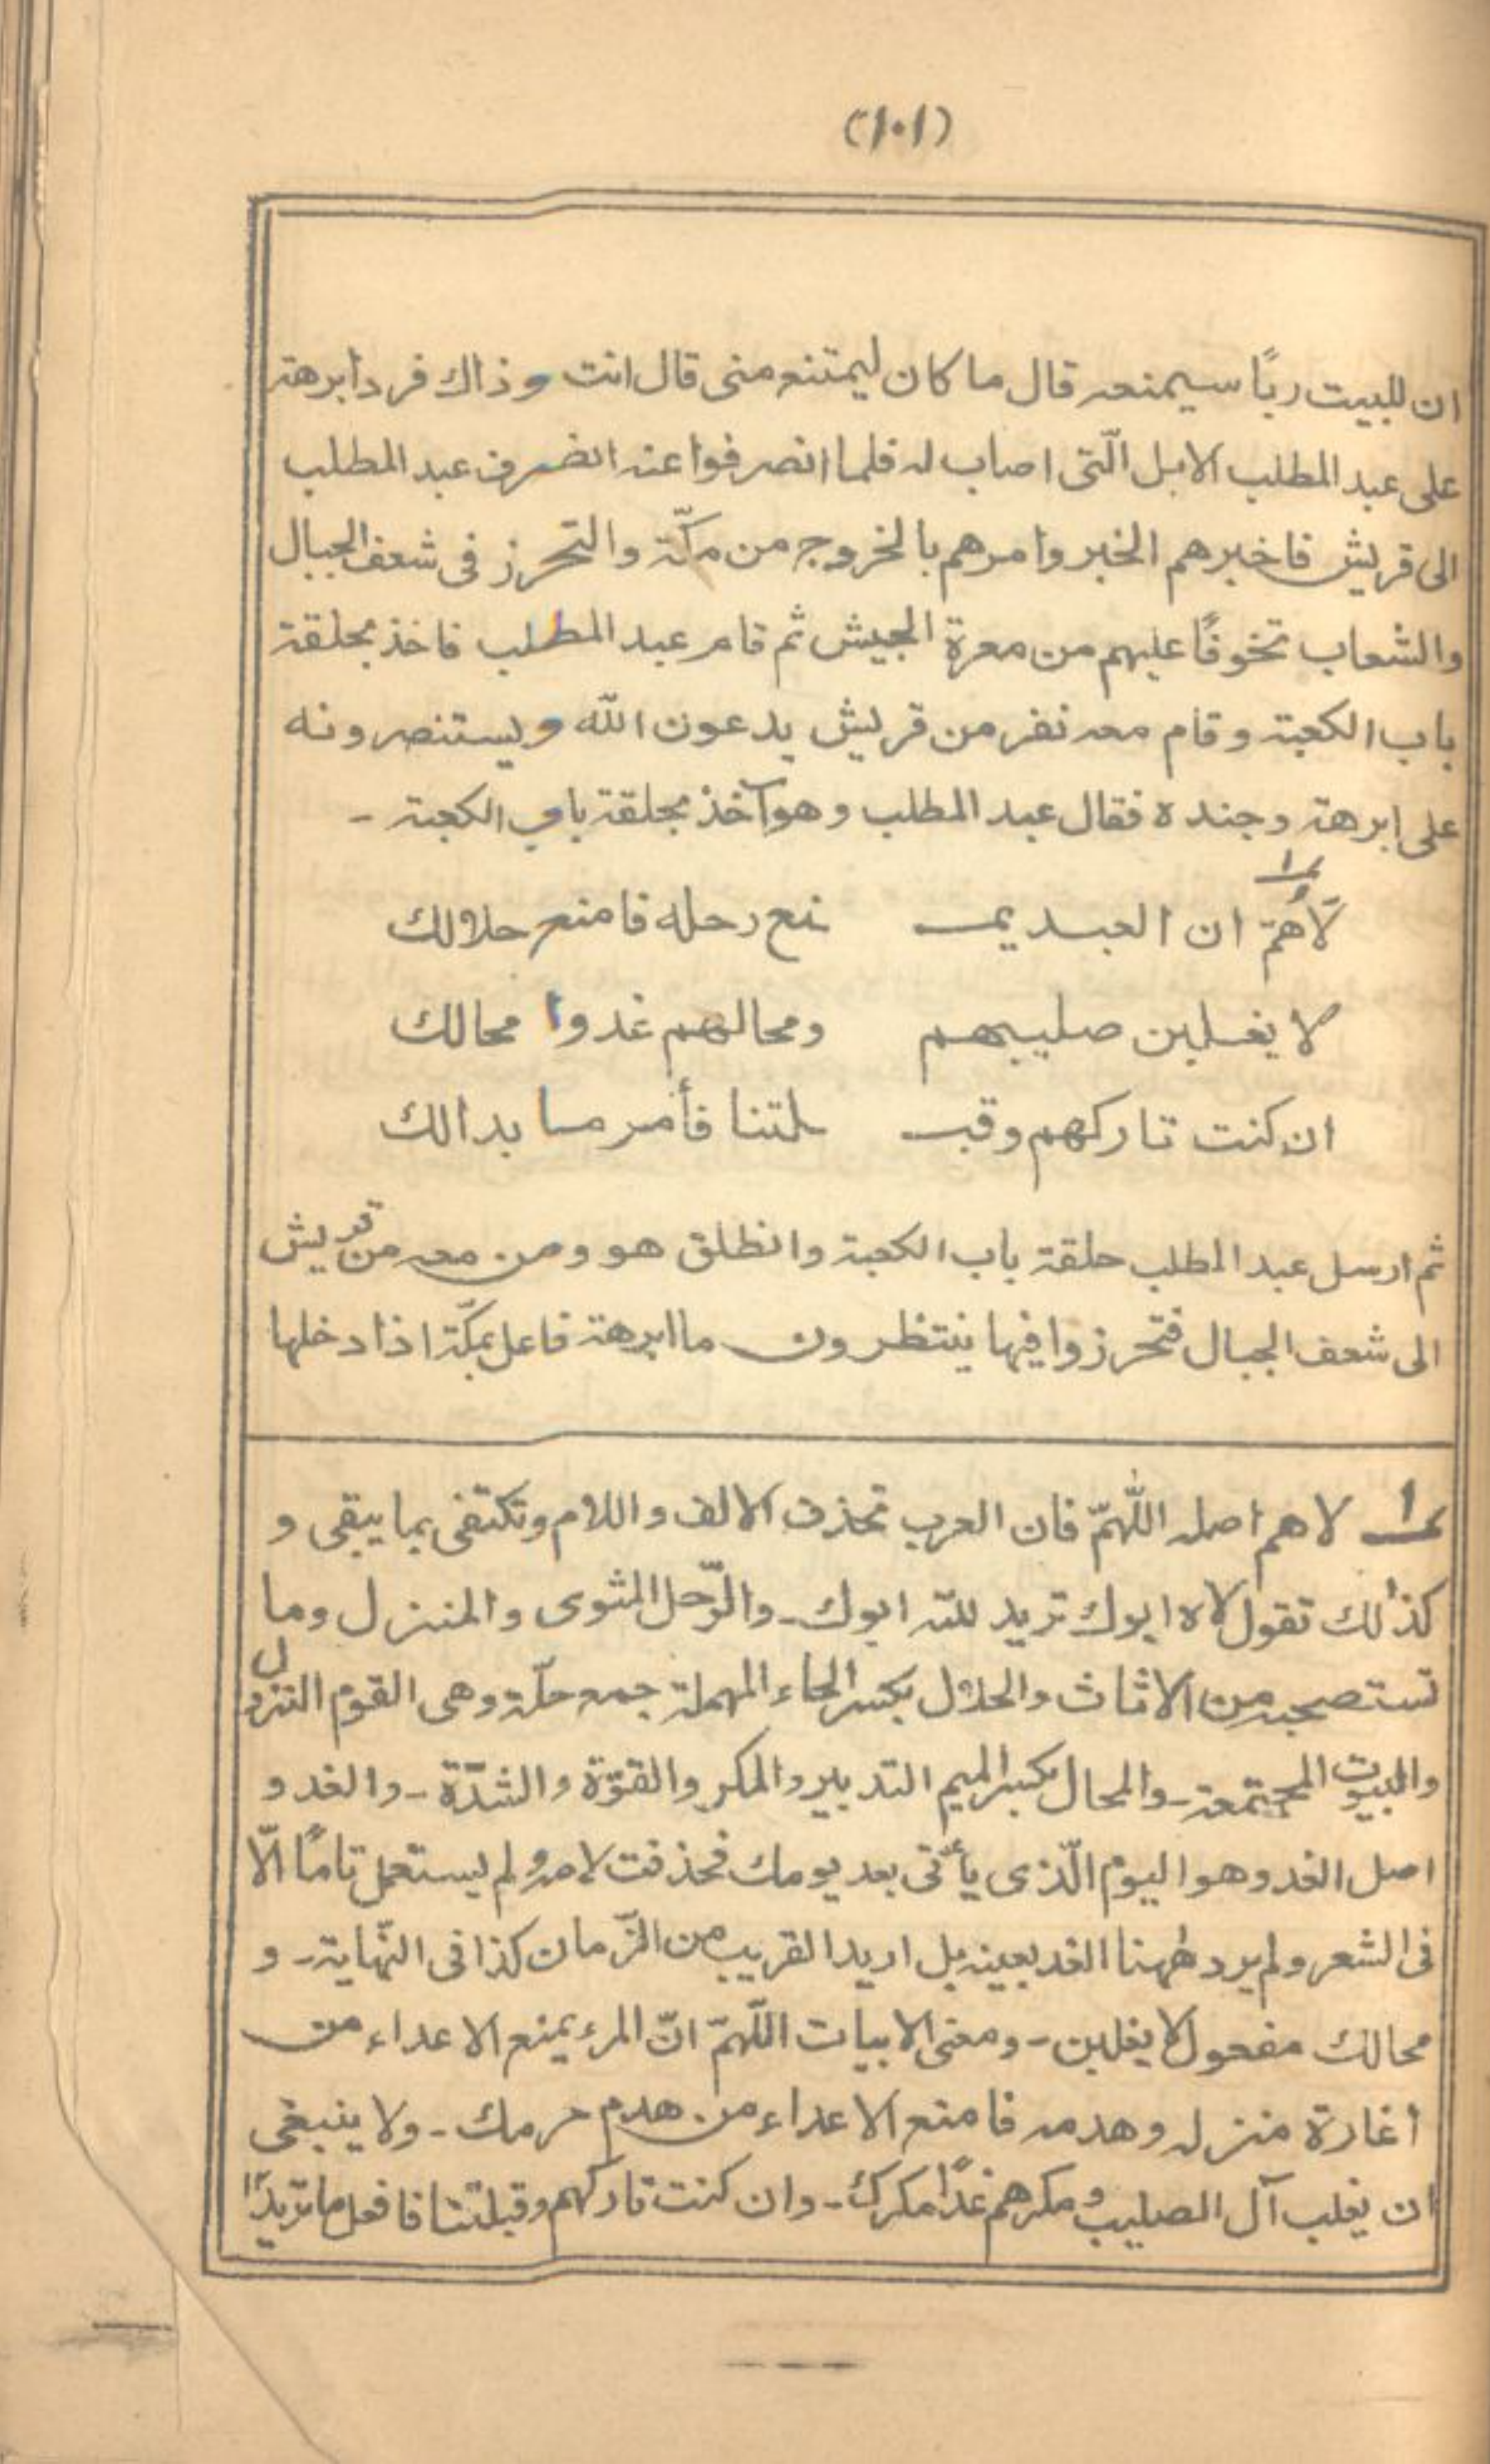 (١٠١)
ان للبيت ربًا سيمنعه قال ما كان ليمتنع منى قال انت و ذاك فرد ابرهة
على عبد المطلب الابل الّتى اصاب له فلما انصرفوا عنه انصرف عبد المطلب
الى قريش فاخبرهم الخبر وامرهم بالخروج من مكّة والتحرز فى شعف الجبال
والشعاب تخوفًا عليهم من معرة الجيش ثم قام عبد المطلب فاخذ بحلقة
باب الكعبة وقام معه نفر من قريش يدعون الله ويستنصرونه
على ابرهة وجنده فقال عبد المطلب وهو آخذ بحلقة باب الكعبة -
لَاهُمّ ان العبد يمـ نع رحله فامنع حلالك
لا يغلبن صليبهم ومحالهم غدوا محالك
ان كنت تاركهم وقبـ ـلتنا فأمر ما بدالك
ثم ارسل عبد المطلب حلقة باب الكعبة وانطلق هو ومن معه من قريش
الى شعف الجبال فتحرزوا فيها ينتظرون ما ابرهة فاعل بمكّة اذا دخلها
١ لاهم اصله اللّٰهمّ فان العرب تحذف الالف واللام وتكتفى بما يبقى و
كذالك تقول لاه ابوك تريد للّه ابوك - والرّحل المثوى والمنزل وما
تستصحبه من الاثاث والحلال بكسر الحاء المهملة جمع حلّة وهى القوم النزول
والبيوت المجتمعة - والمحال بكسر الميم التدبير والمكر والقوّة والشدّة - والغدو
اصل الغد وهو اليوم الّذى يأتى بعد يومك فحذفت لامه ولم يستعمل تامًا الّا
فى الشعر ولم يرد ههنا الغد بعينه بل اريد القريب من الزّمان كذا فى النّهاية - و
محالك مفعول لا يغلبن - ومعنى الابيات اللّهمّ انّ المرء يمنع الاعداء من
اغارة منزله وهدمه فامنع الاعداء من هدم حرمك - ولا ينبغى
ان يغلب آل الصليب ومكرهم غدًا مكرك - وان كنت تاركهم وقبلتنا فافعل ما تريد